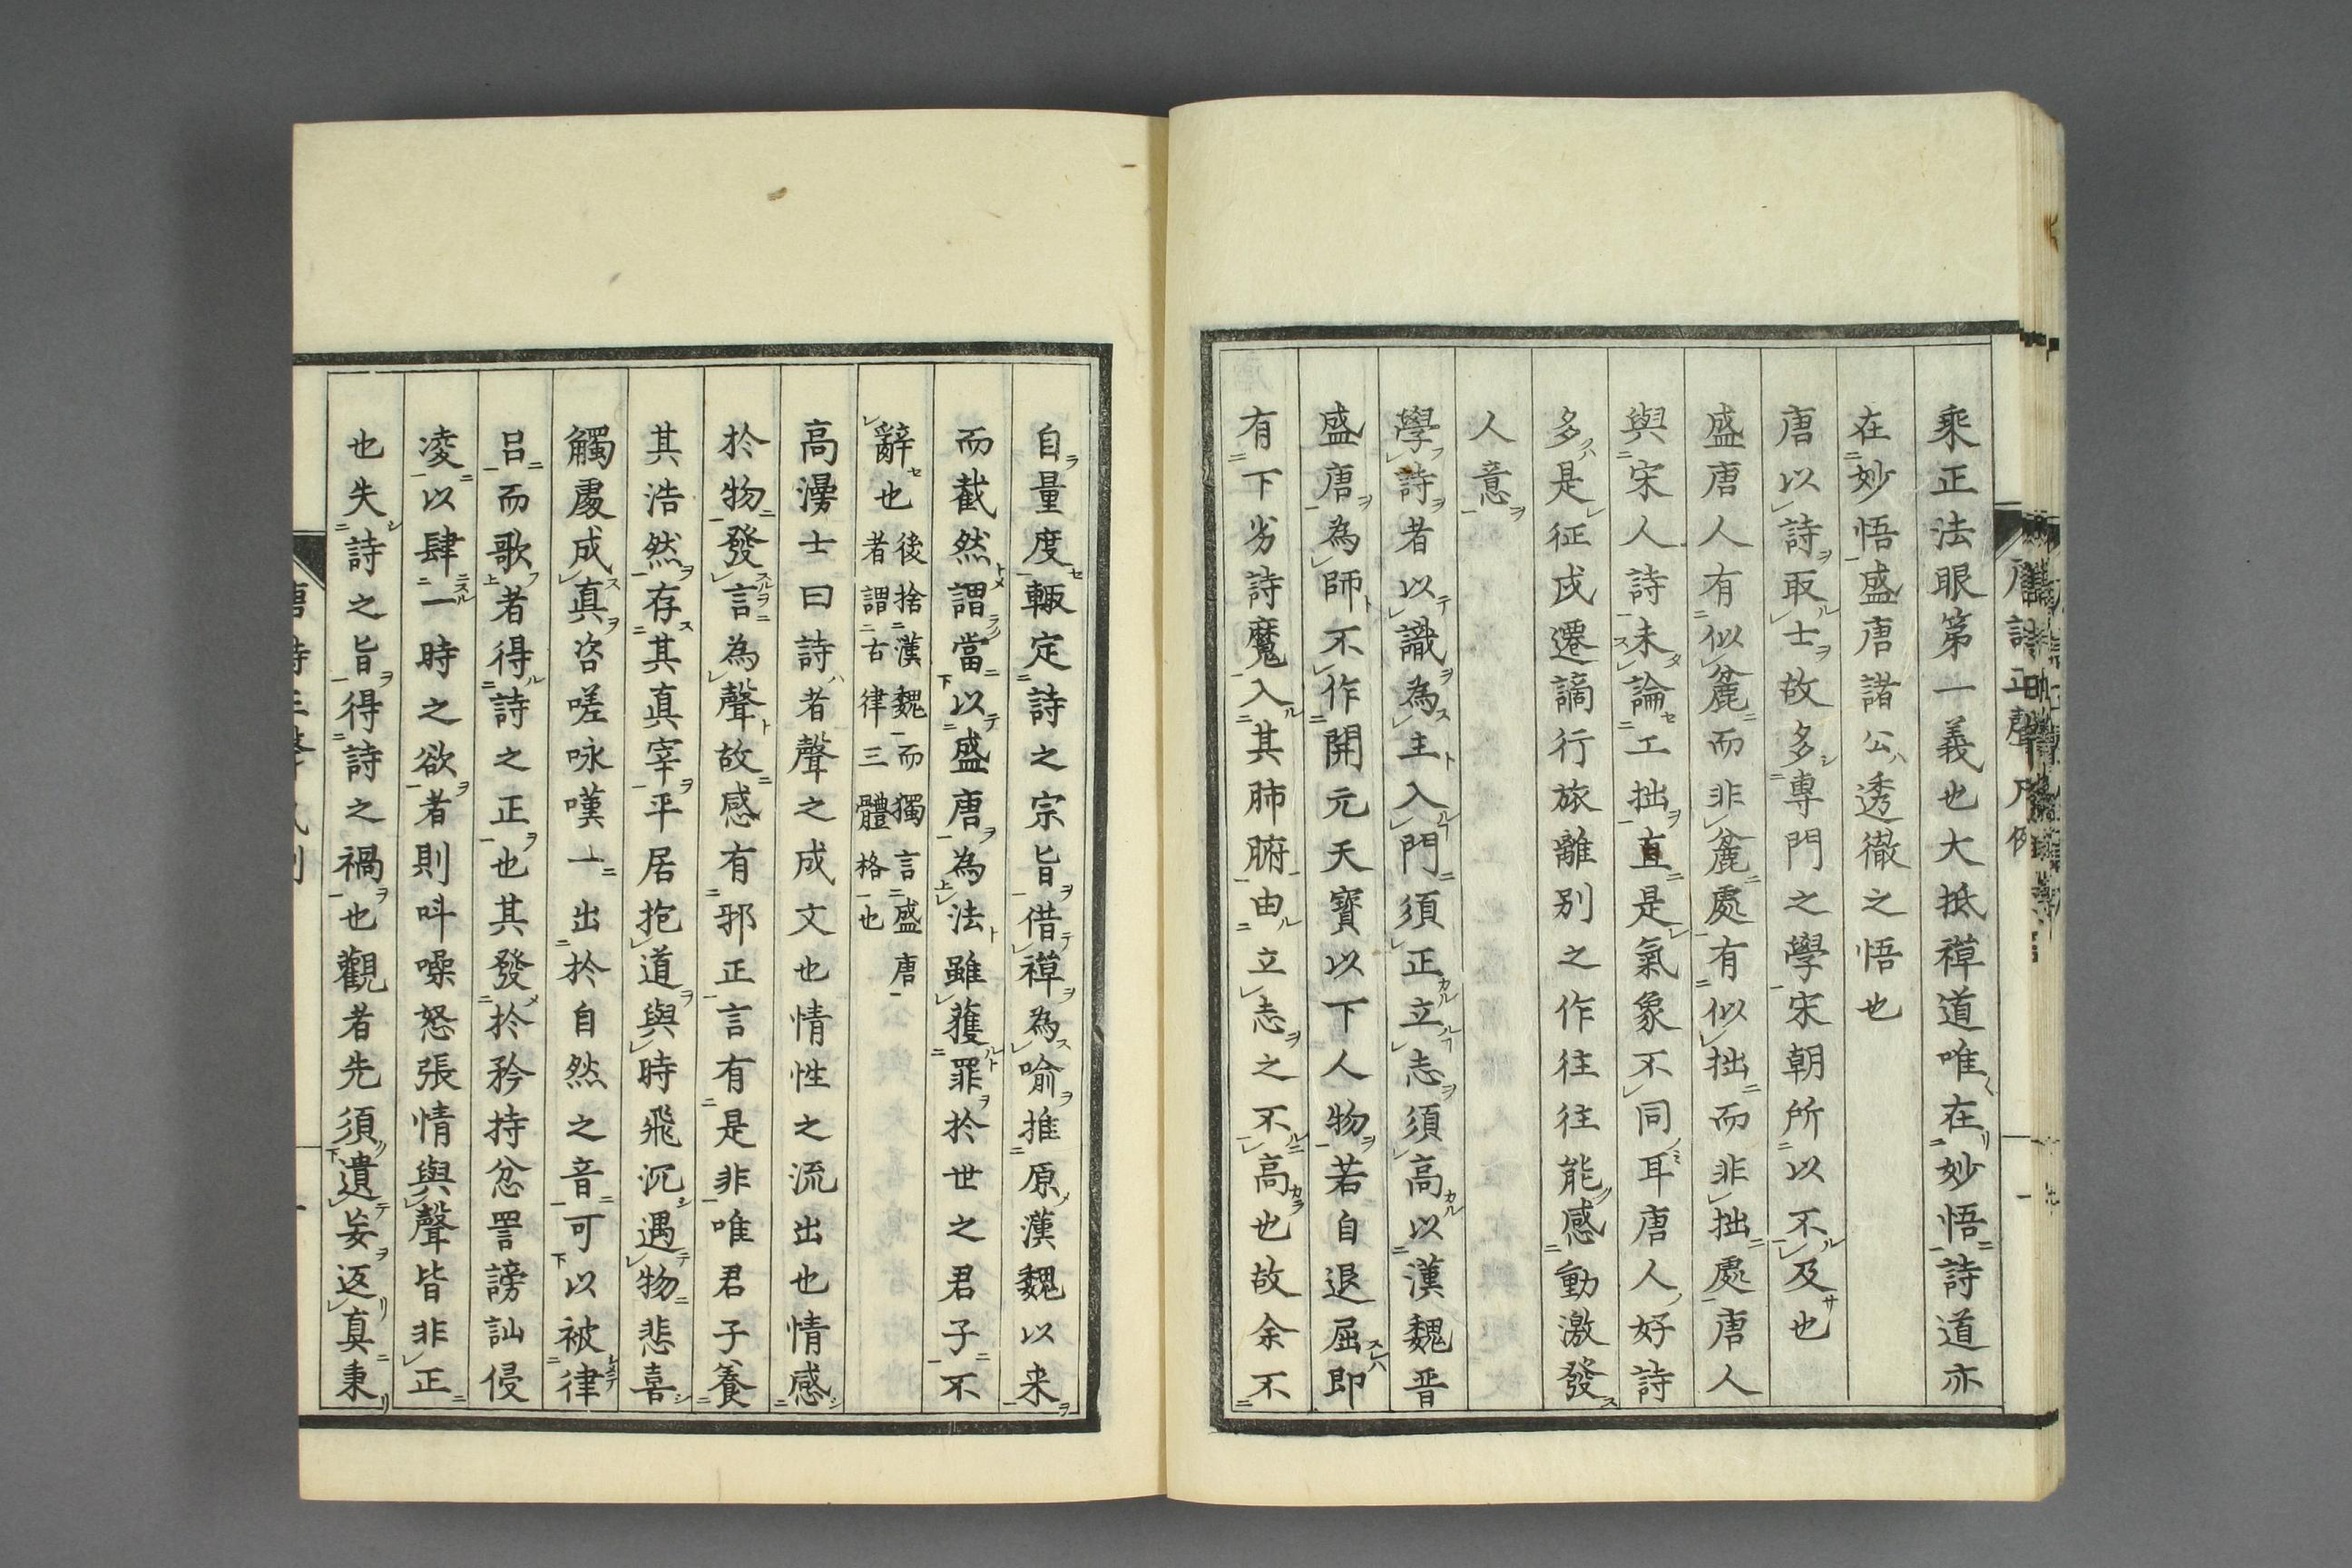 乘正法眼第一義也大抵禪道唯在妙悟詩道亦
在妙悟盛唐諸公透徹之悟也
唐以詩取士故多專門之學宋朝所以不及也
盛唐人有似麄而非麄處有似拙而非拙處唐人
與宋人詩未論工拙直是氣象不同耳唐人好詩
多是征戍遷謫行旅離別之作往往能感動激發
人意
學詩者以識為主入門須正立志須高以漢魏晋
盛唐為師不作開元天寶以下人物若自退屈即
有下劣詩魔入其肺腑由立志之不高也故余不
自量度輙定詩之宗旨借禪為喻推原漢魏以来
而截然謂當以盛唐為法雖獲罪於世之君子不
辭也後捨漢魏而獨言盛唐者謂古律三體格也
高漫士曰詩者聲之成文也情性之流出也情感
於物發言為聲故感有邪正言有是非唯君子養
其浩然存其真宰平居抱道與時飛沉遇物悲喜
觸處成真咨嗟咏嘆一出於自然之音可以被律
呂而歌者得詩之正也其發於矜持忿詈謗訕侵
凌以肆一時之欲者則呌噪怒張情與聲皆非正
也失詩之旨得詩之禍也觀者先須遺妄返真秉